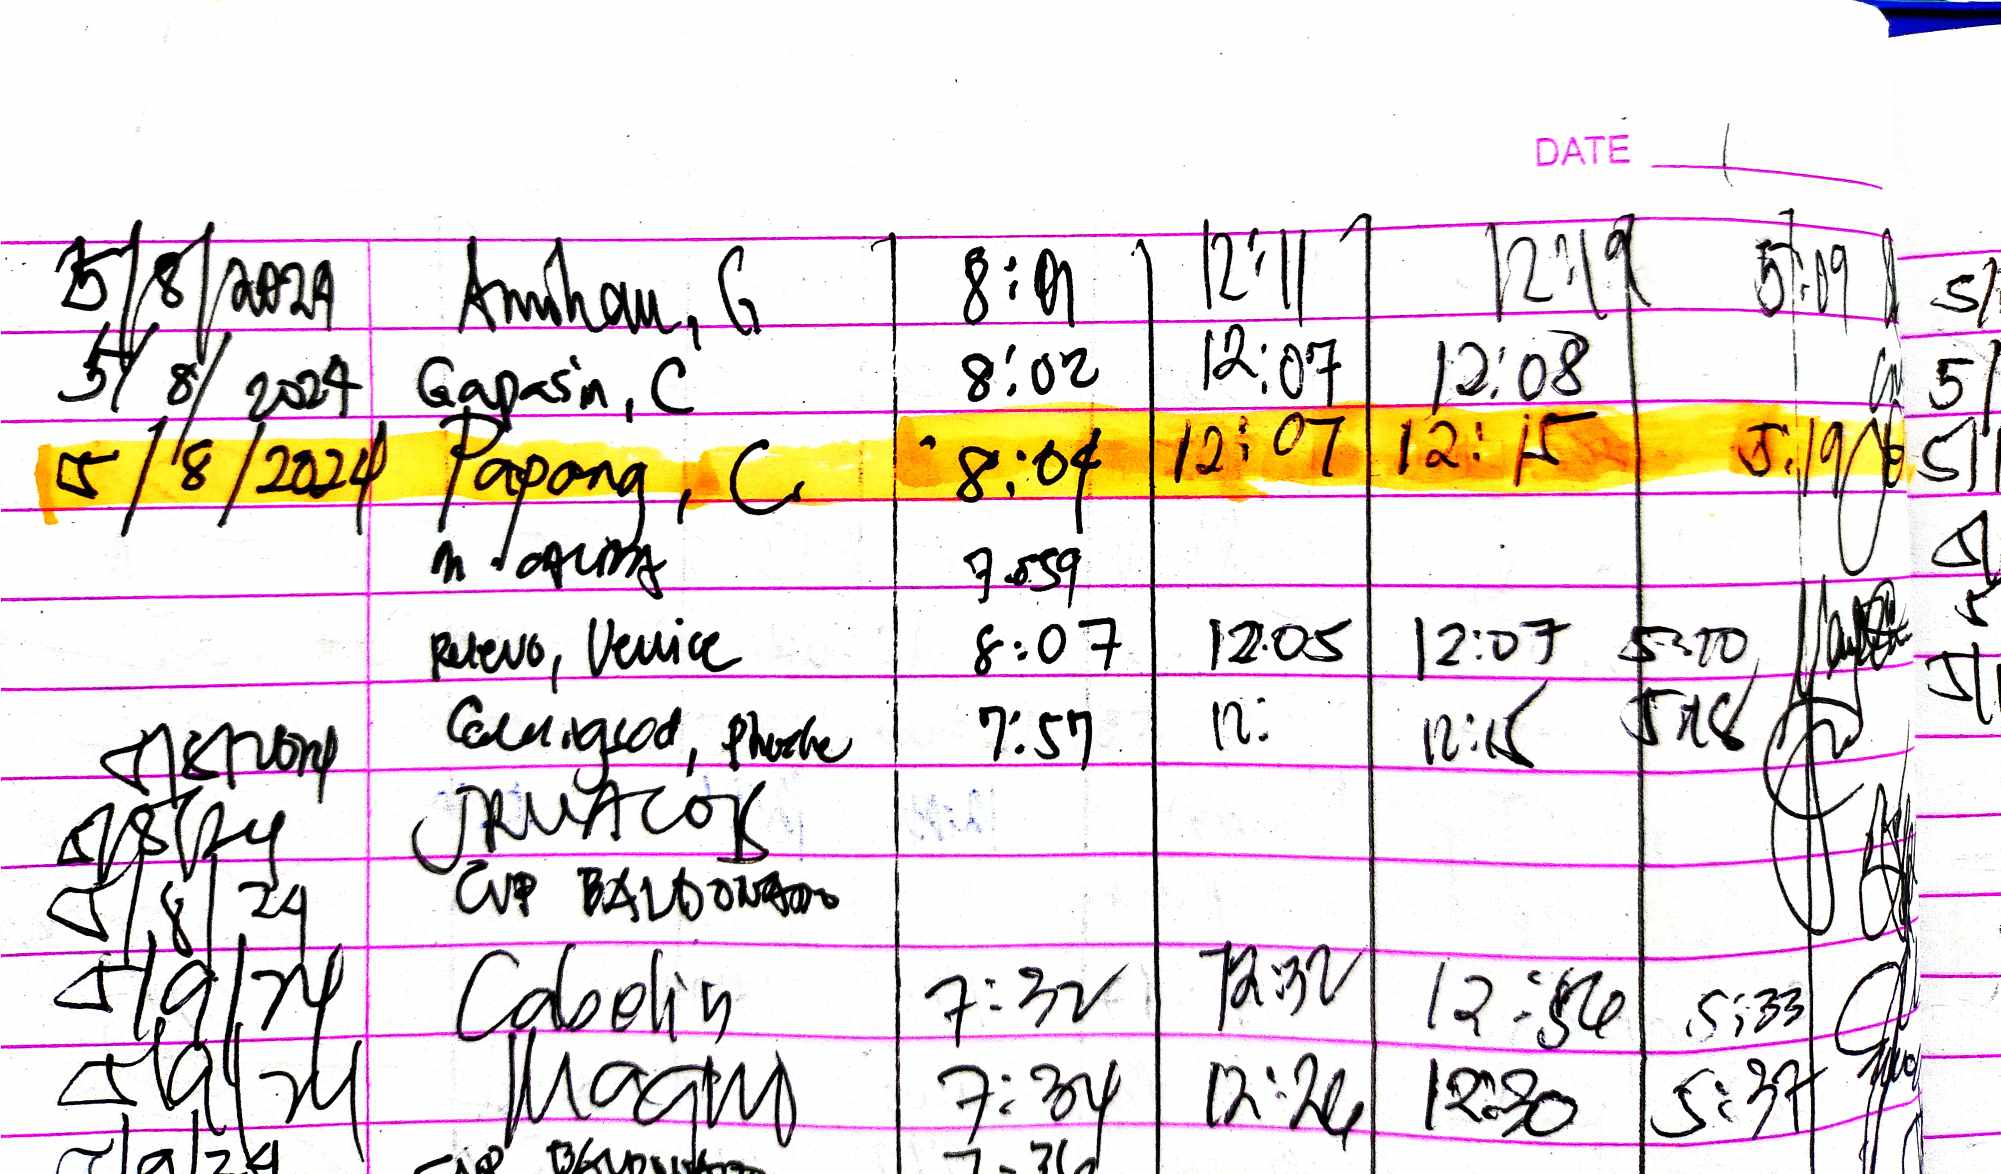 DATE
5/8/2024 Amihan, G 8:01 12:11 12:19 5:09
5/8/2024 Gapasin, C 8:02 12:07 12:08
5/8/2024 Papang, C. 8:04 12:07 12:15 5:19
7:59
Relevo, Venice 8:07 12:05 12:07
5/8/2024 7:57 12: 12:15 5:18
5/8/24
5/8/24 CVP BALDONADO
5/9/24 Cabelin 7:32 12:32 12:56 5:33
5/9/24 Magno 7:34 12:26 12:30 5:37
5/9/24